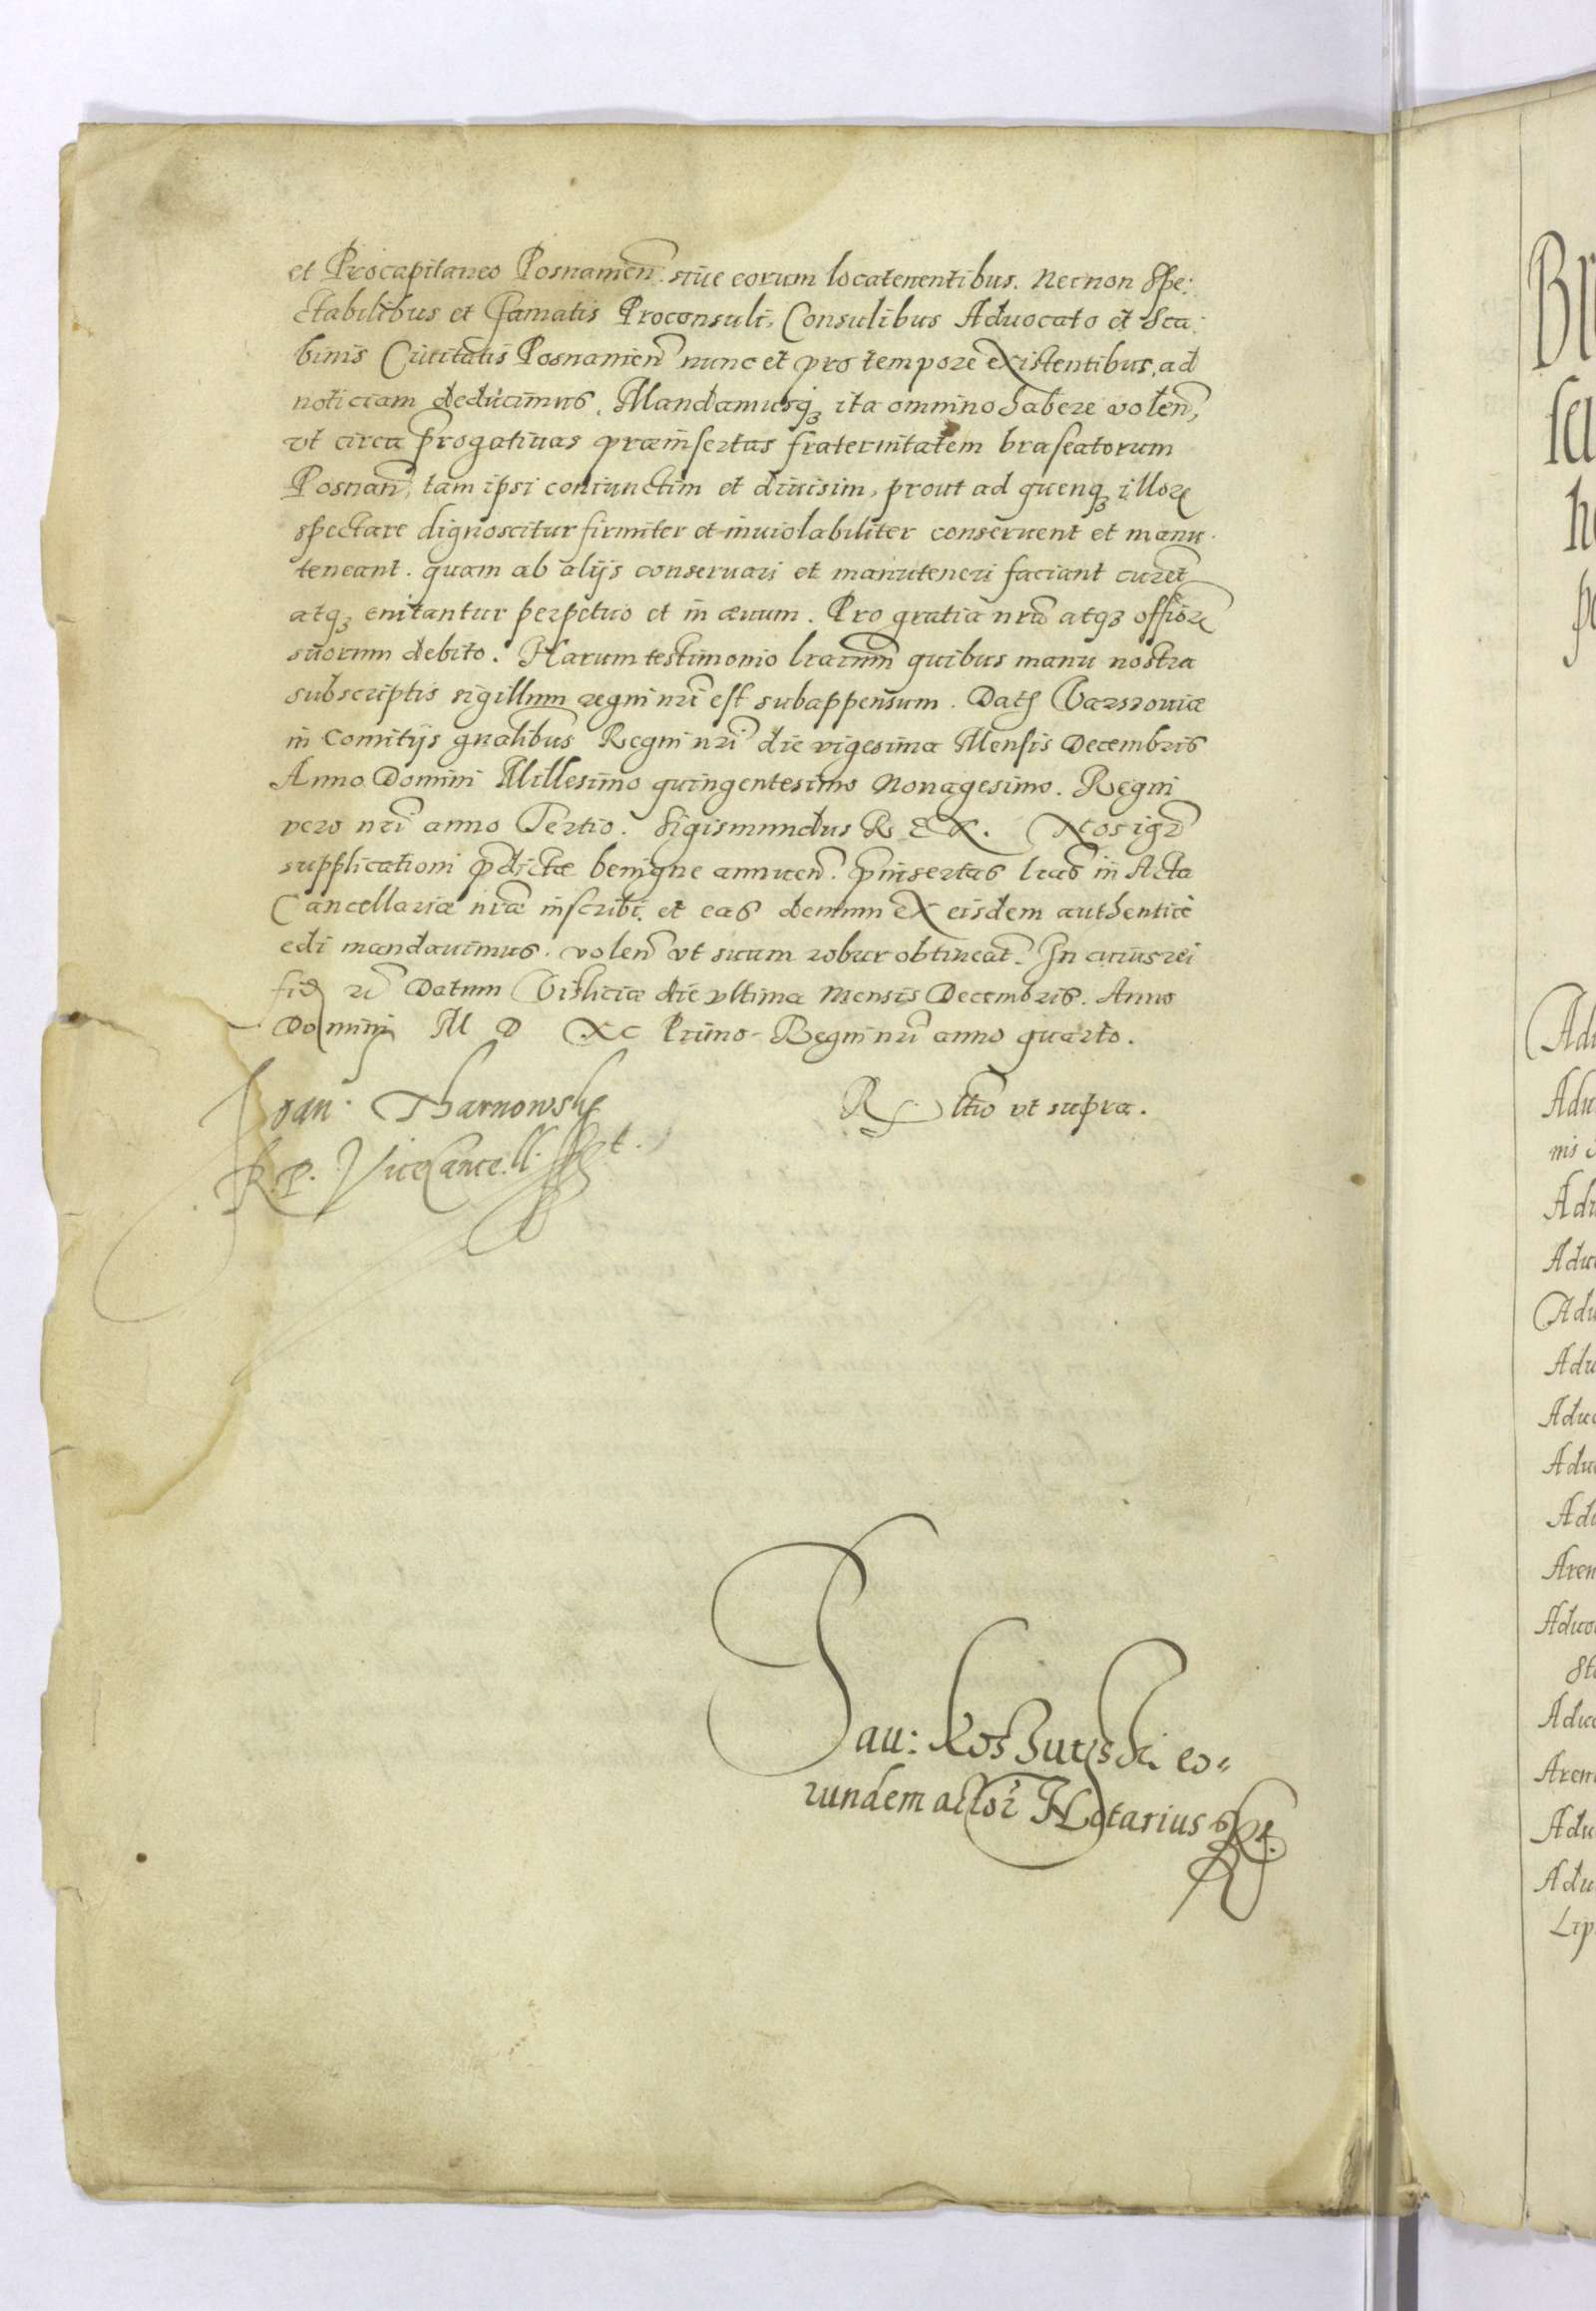 et Procapitaneo Posnanien. siue eorum locatenentibus. Necnon Spe:
ctabilibus et Famatis Proconsuli, Consulibus Aduocato et Sca:
binis Ciuitatis Posnanien nunc et pro tempore existentibus, ad
noticiam deducimus. Mandamusq3 ita omnino habere volen,
vt circa progatiuas praeinsertas fraternitatem braseatorum
Posnan, tam ipsi coniunctim et diuisim, prout ad quenq3 illor
spectare dignoscitur firmiter et inuiolabiliter conseruent et manu
teneant. quam ab alijs conseruari et manuteneri faciant curet
atq3 enitantur perpetuo et in aeuum. Pro gratia nra atq3 officior
suorum debito. Harum testimonio lrarum quibus manu nostra
subscriptis sigillum regni nri est subappensum. Dat Varsouiae
in Comitijs gnalibus Regni nri die vigesima Mensis Decembris
Anno Domini Millesimo quingentesimo Nonagesimo. Regni
vero nri anno Tertio. Sigismundus REX. Nos igr
supplicationi pdictae benigne annuen. pinsertas lras in Acta
Cancellariae nrae inscribi, et eas demum ex eisdem authentice
edi mandauimus. volen vt suum robur obtineat. In cuius rei
fid Datum Visliciae die vltima Mensis Decembris. Anno
Domini M D XC Primo Regni nri anno quarto.
Joan. Tharnowsky R ltio vt supra.
R. P. ViceCancell. sst.
Pau: Koshutski eo=
rundem actor Notarius
Br
Adu
Adu
nis
Adu
Adu
Adu
Adu
Aduo
Adu
Adu
Aren
Aduo
Sta
Aduo
Aren
Adu
Adu
Lip